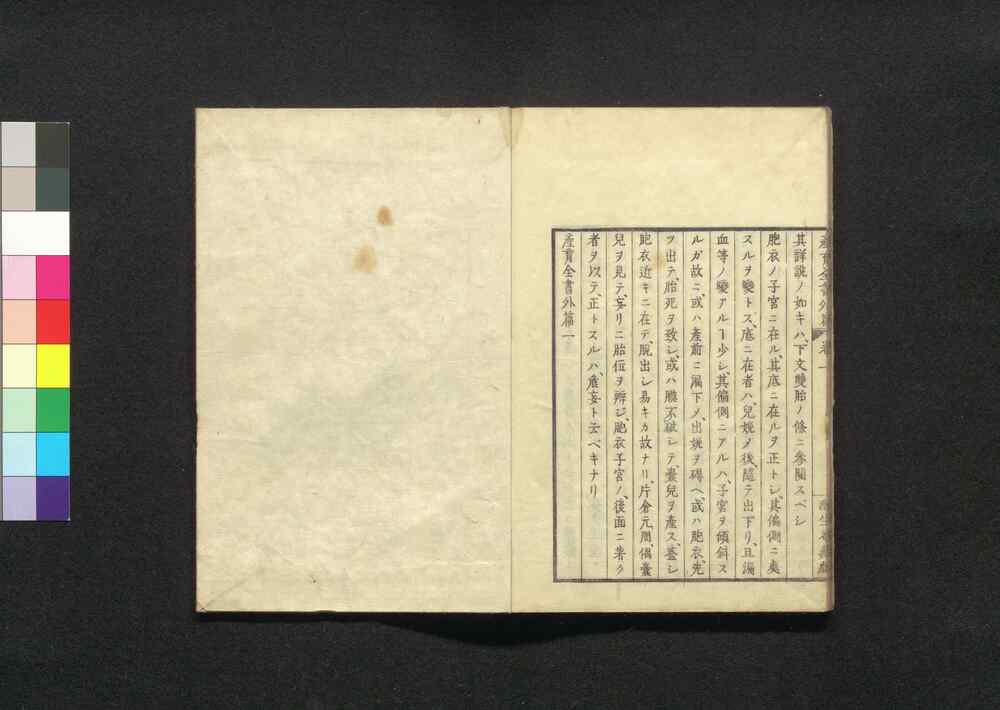 産育全書外篇 卷一
其詳説ノ如キハ、下文雙胎ノ條ニ參閲スベシ
胞衣ノ子宮ニ在ル、其底ニ在ルヲ正トシ、其偏側ニ
スルヲ變トス、底ニ在者ハ、兒娩メ後、隨テ出下リ、且漏
血等ノ變アルヿ少シ、其偏側ニアルハ、子宮ヲ傾斜ス
ルガ故ニ、或ハ産前ニ漏下メ、出娩ヲ碍ヘ、或ハ胞衣、先
ツ出テ、胎死ヲ致シ、或ハ膜不破シテ、嚢兒ヲ產ス、蓋シ
胞衣近キニ在テ、脱出シ易キカ故ナリ、片倉元周、偶嚢
兒ヲ見テ、妄リニ胎位ヲ辨シ、胞衣子宮ノ、後面ニ着ク
者ヲ以テ、正トスルハ、虚妄ト云ベキナリ
産育全書外篇一